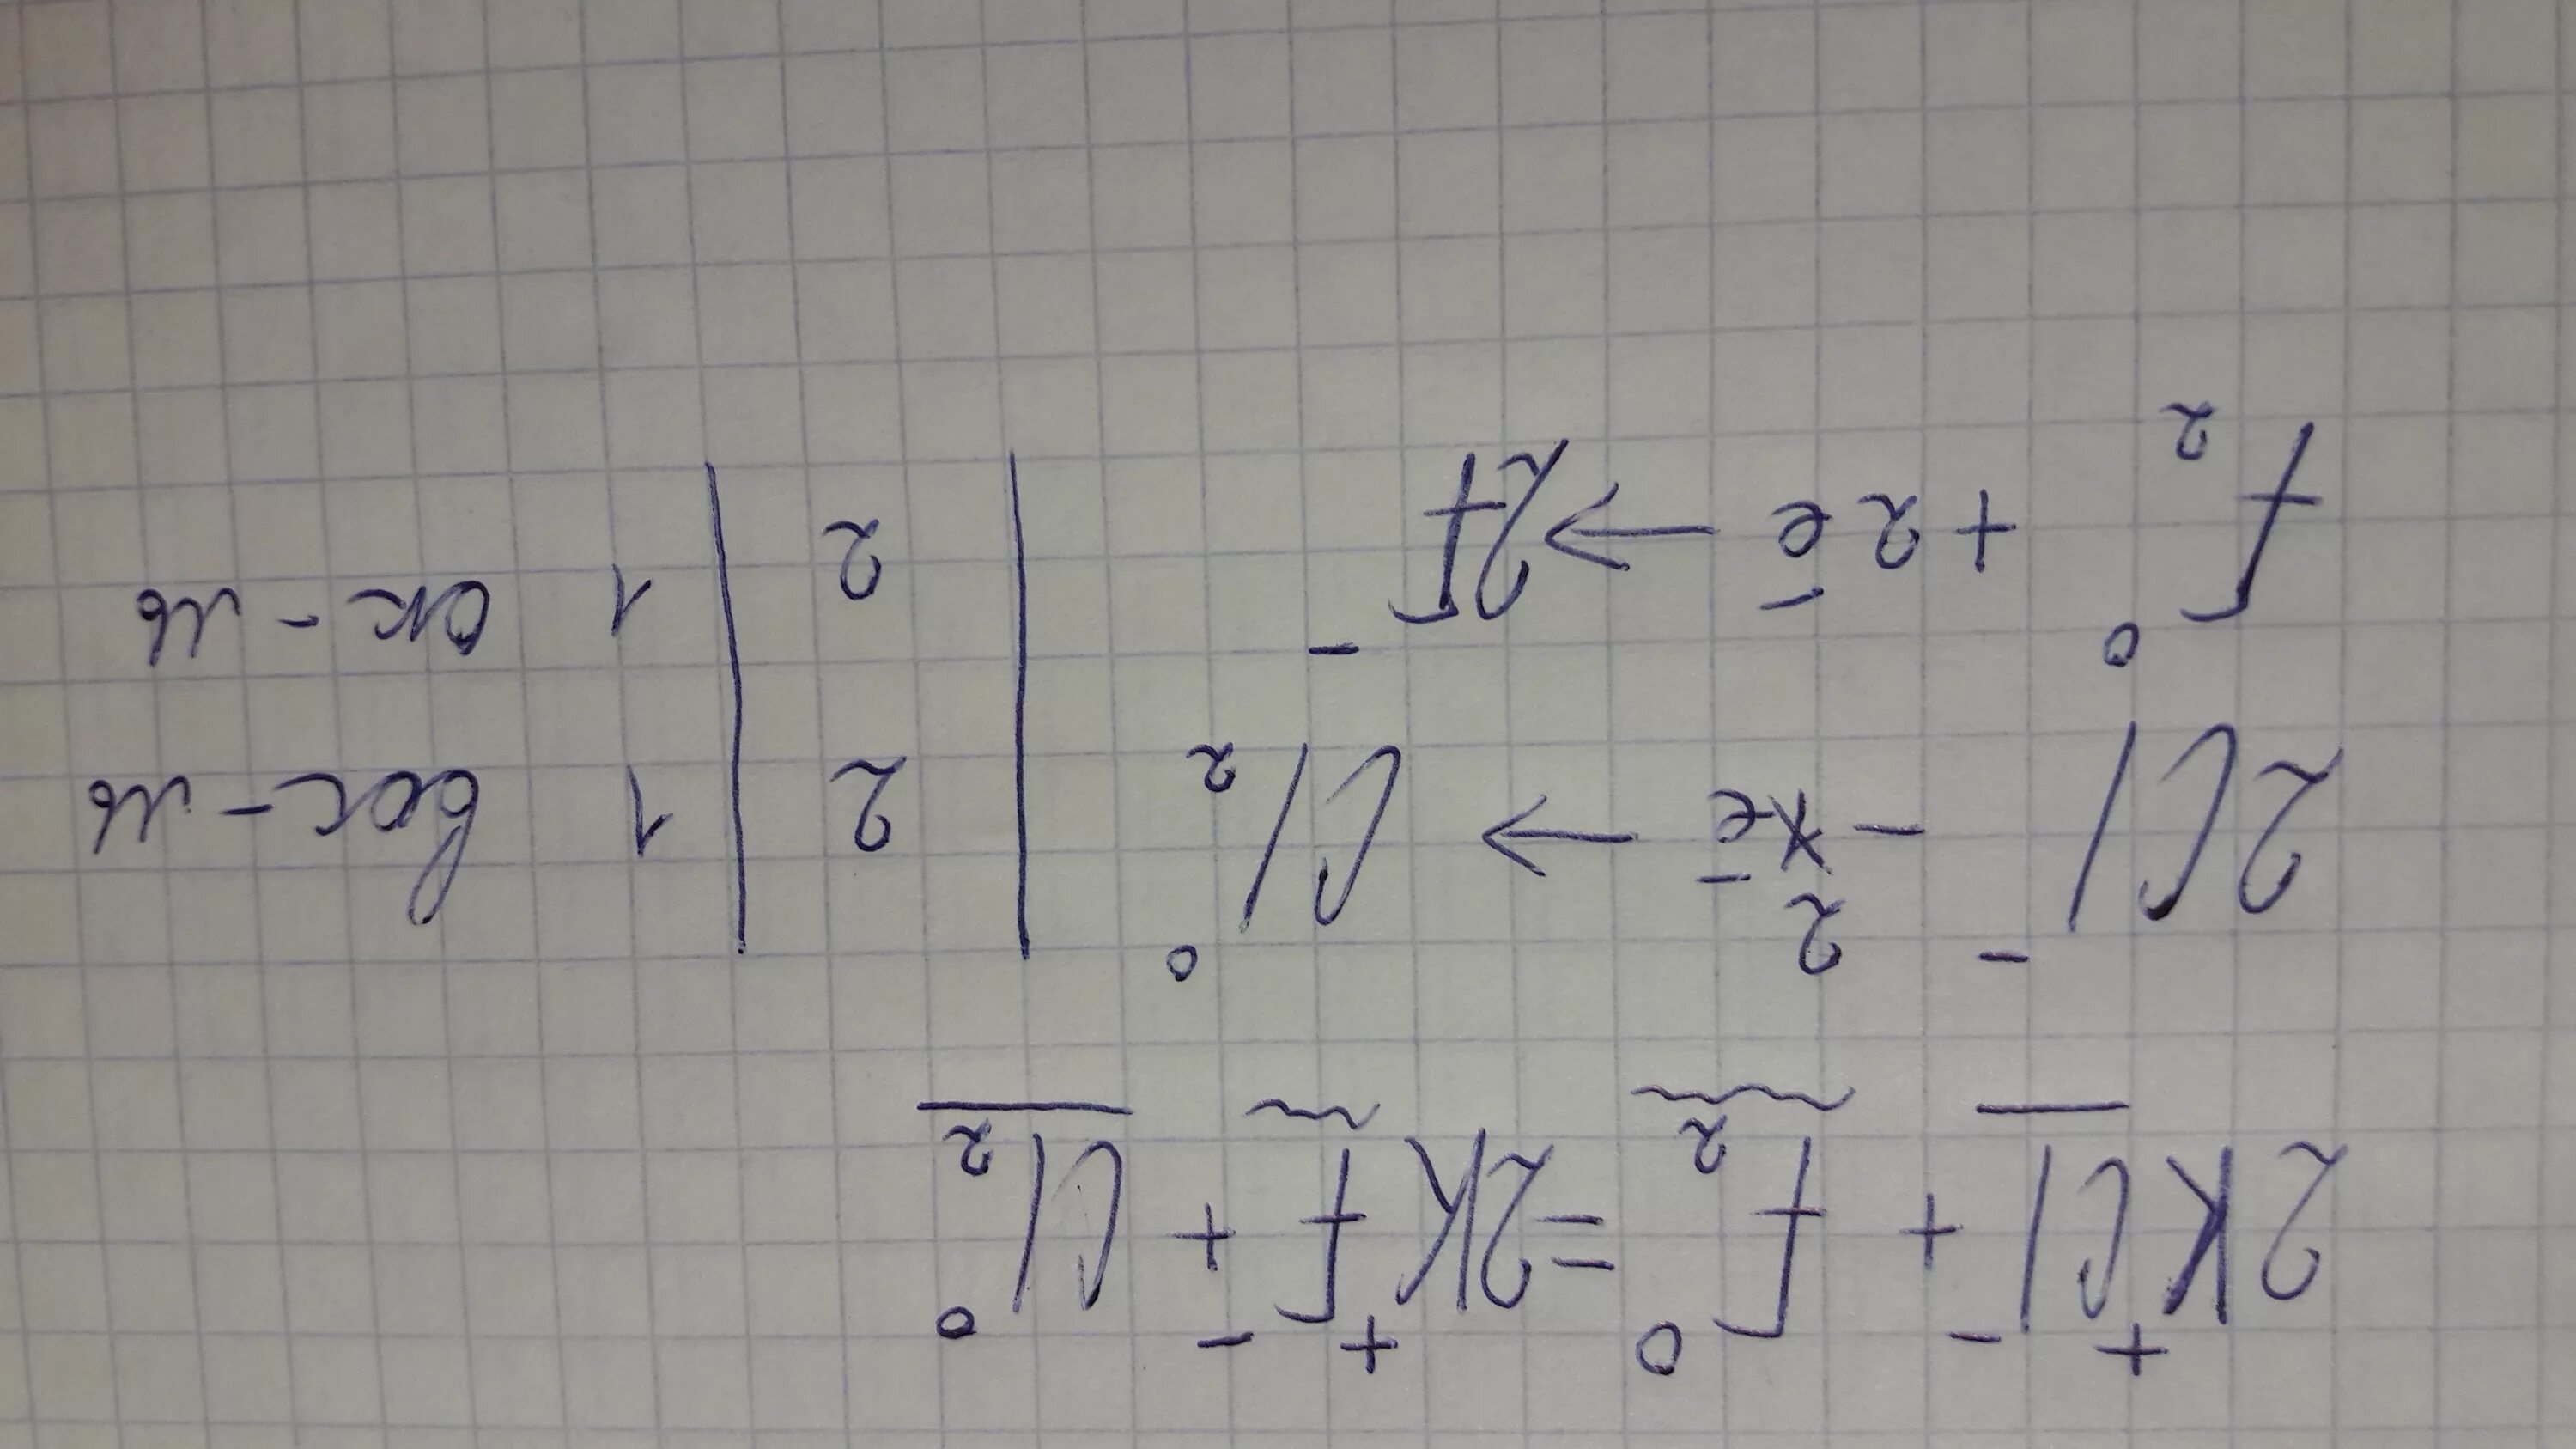 2K⁺Cl⁻ + F₂⁰ = 2K⁺F⁻ + Cl₂⁰
2Cl⁻ - 2ē → Cl₂⁰ | 2 | 1 вос-ль
F₂⁰ + 2ē → 2F⁻ | 2 | 1 ок-ль